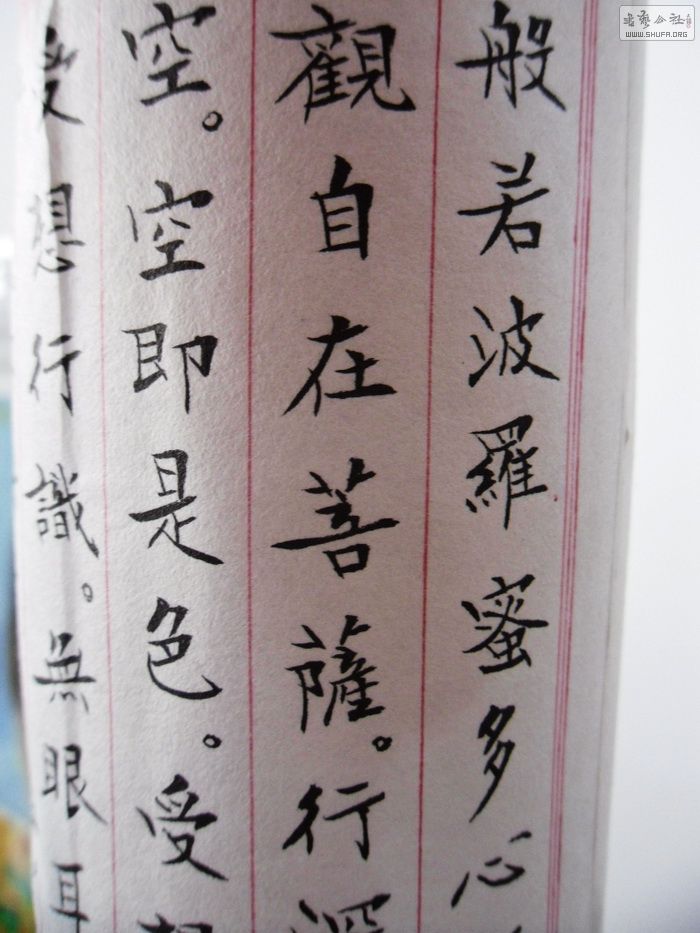 般若波羅蜜多心
觀自在菩薩。行深
空。空即是色。受想
受想行識。無眼耳
書藝公社
WWW.SHUFA.ORG